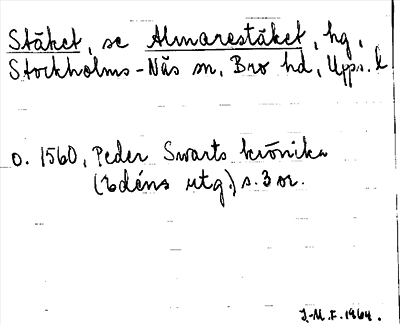 Stäket, se Almarestäket, hg,
Stockholms-Näs sn, Bro hd, Upps. l
o. 1560, Peder Swarts krönika
(Edéns utg.) s. 3 or.
J-M.F. 1964.